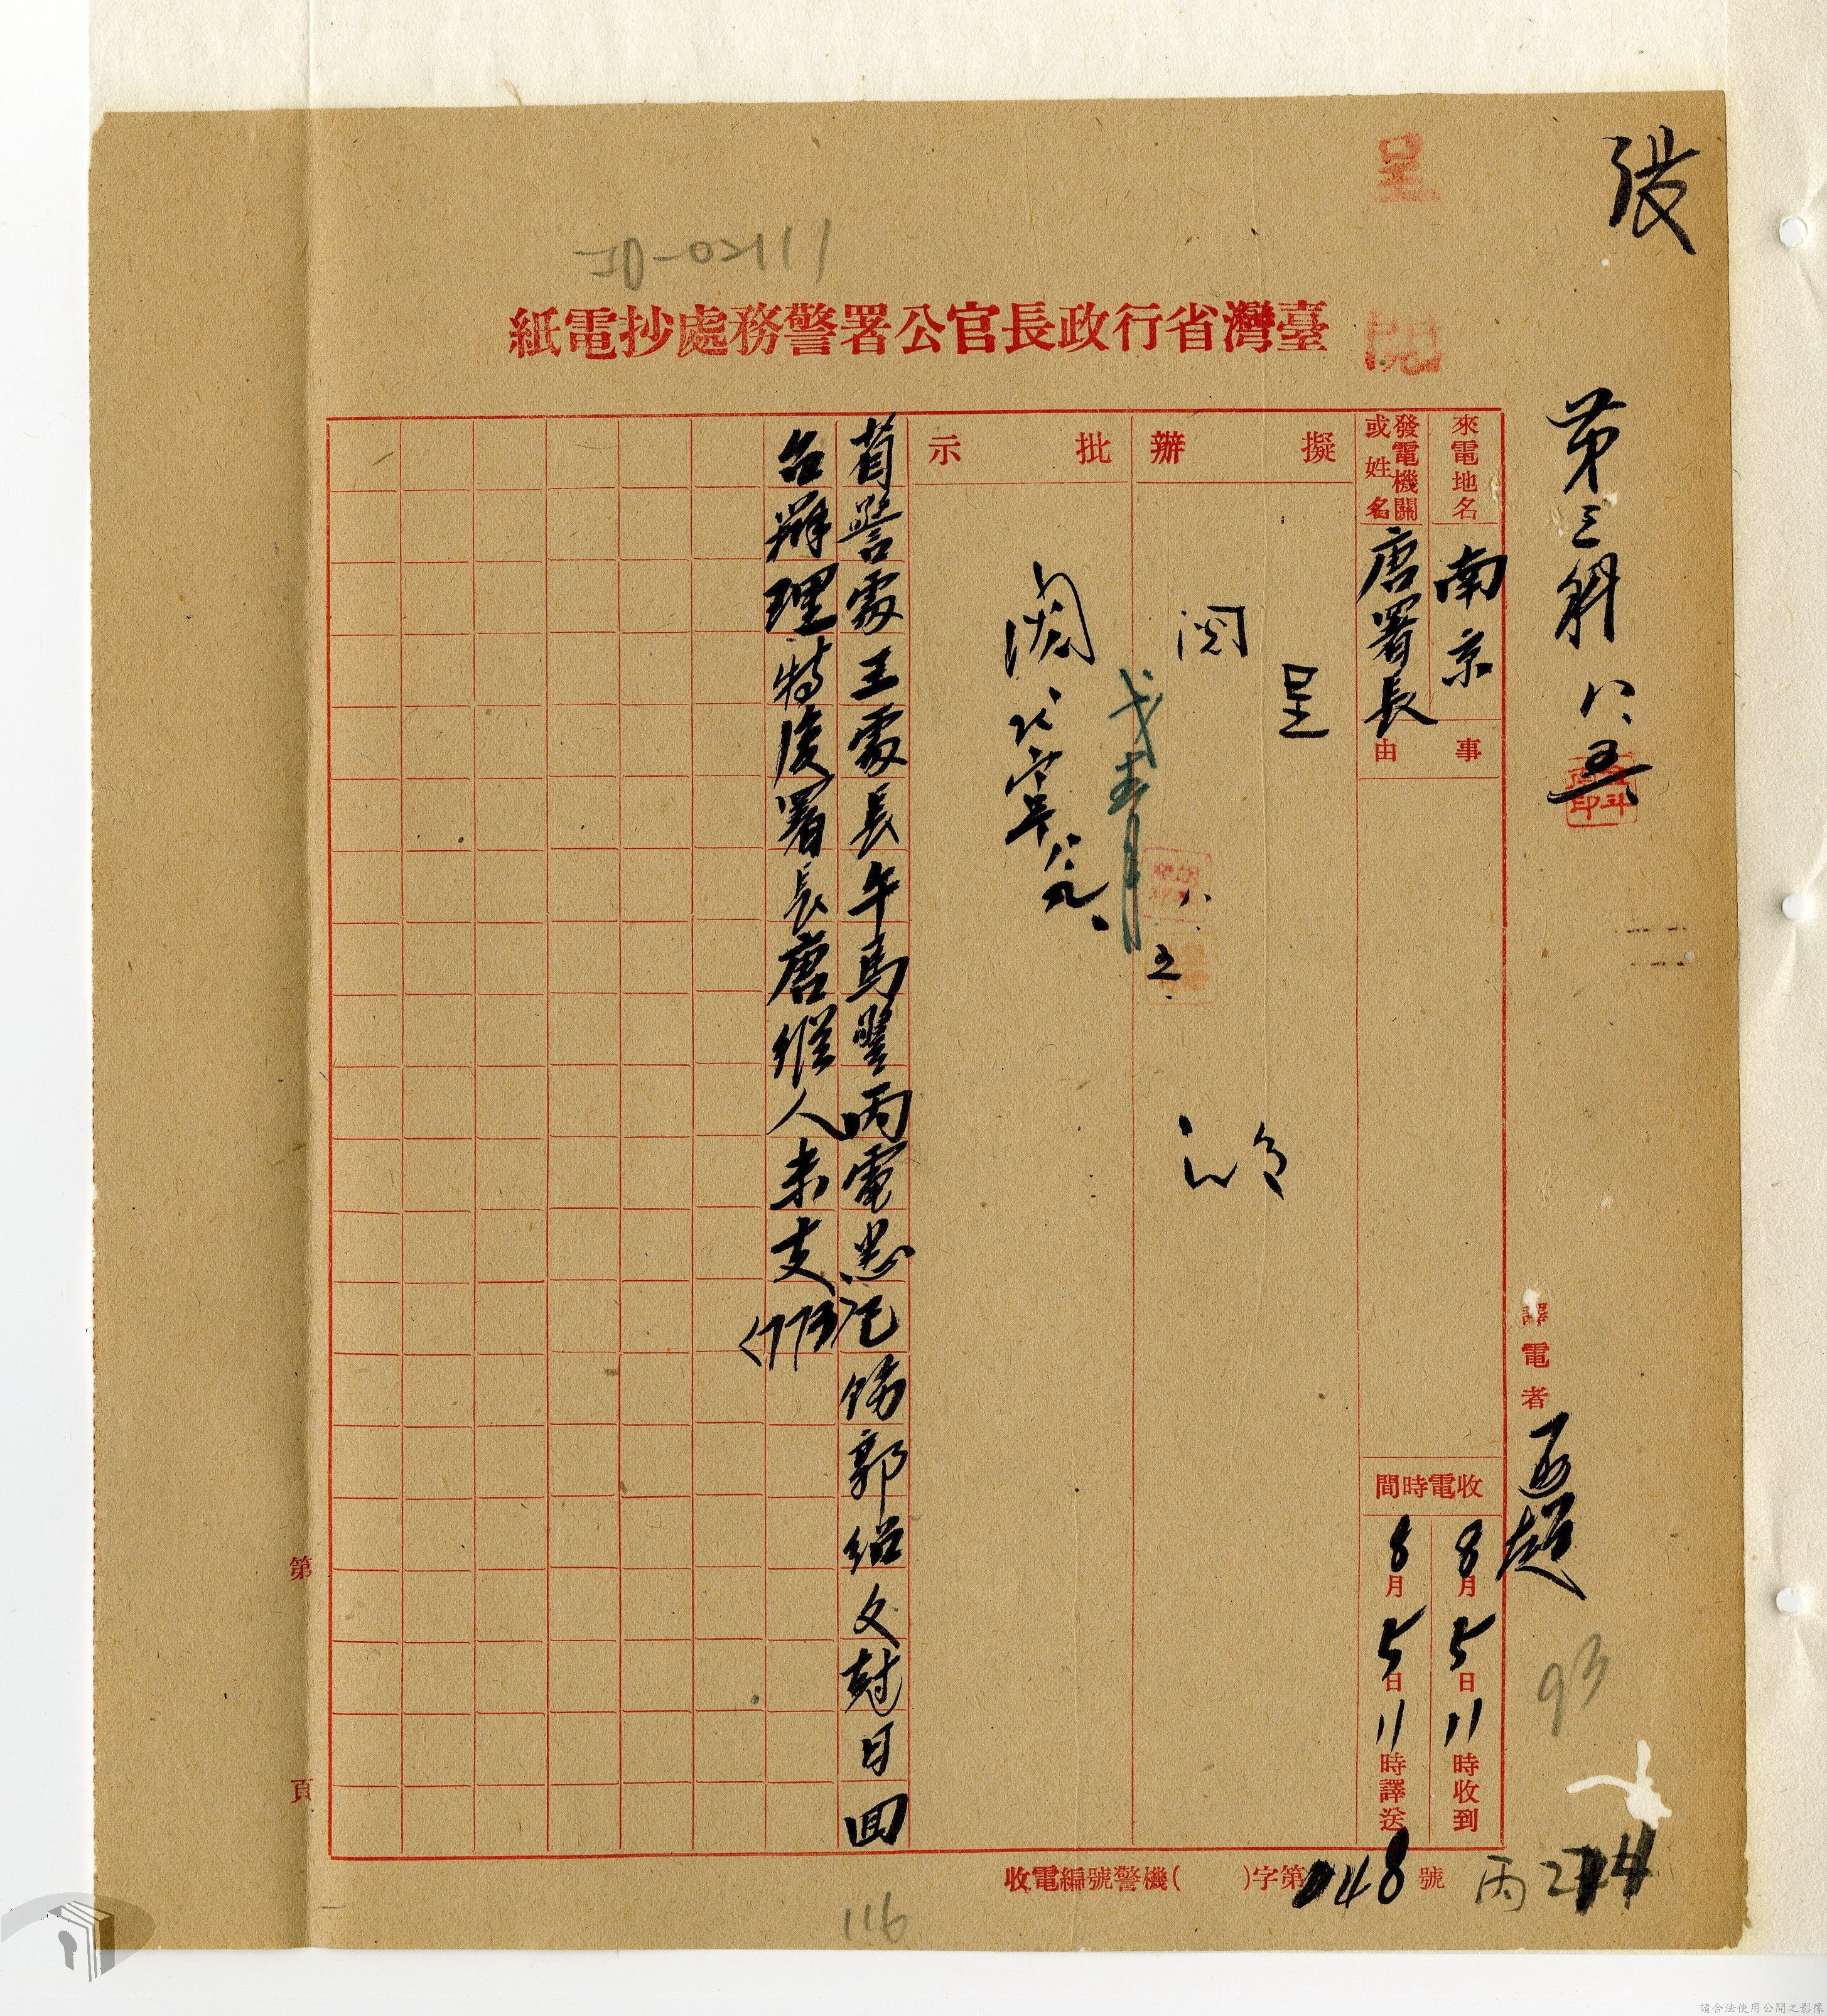 張
呈
閱
第三科 八、五
臺灣省行政長官公署警務處抄電紙
來電地名
南京
發電機關或姓名
唐署長
事由
收電時間
8月5日11時收到
8月5日11時譯送
譯電者
擬辦
呈
閱
八、五
批示
閱
省警處王處長午馬警丙電悉已飭郭紹文尅日回
台辦理特復署長唐縱人未支
收電編號警機( )字第148號
丙
93
116
第 頁
請合法使用公開之影像